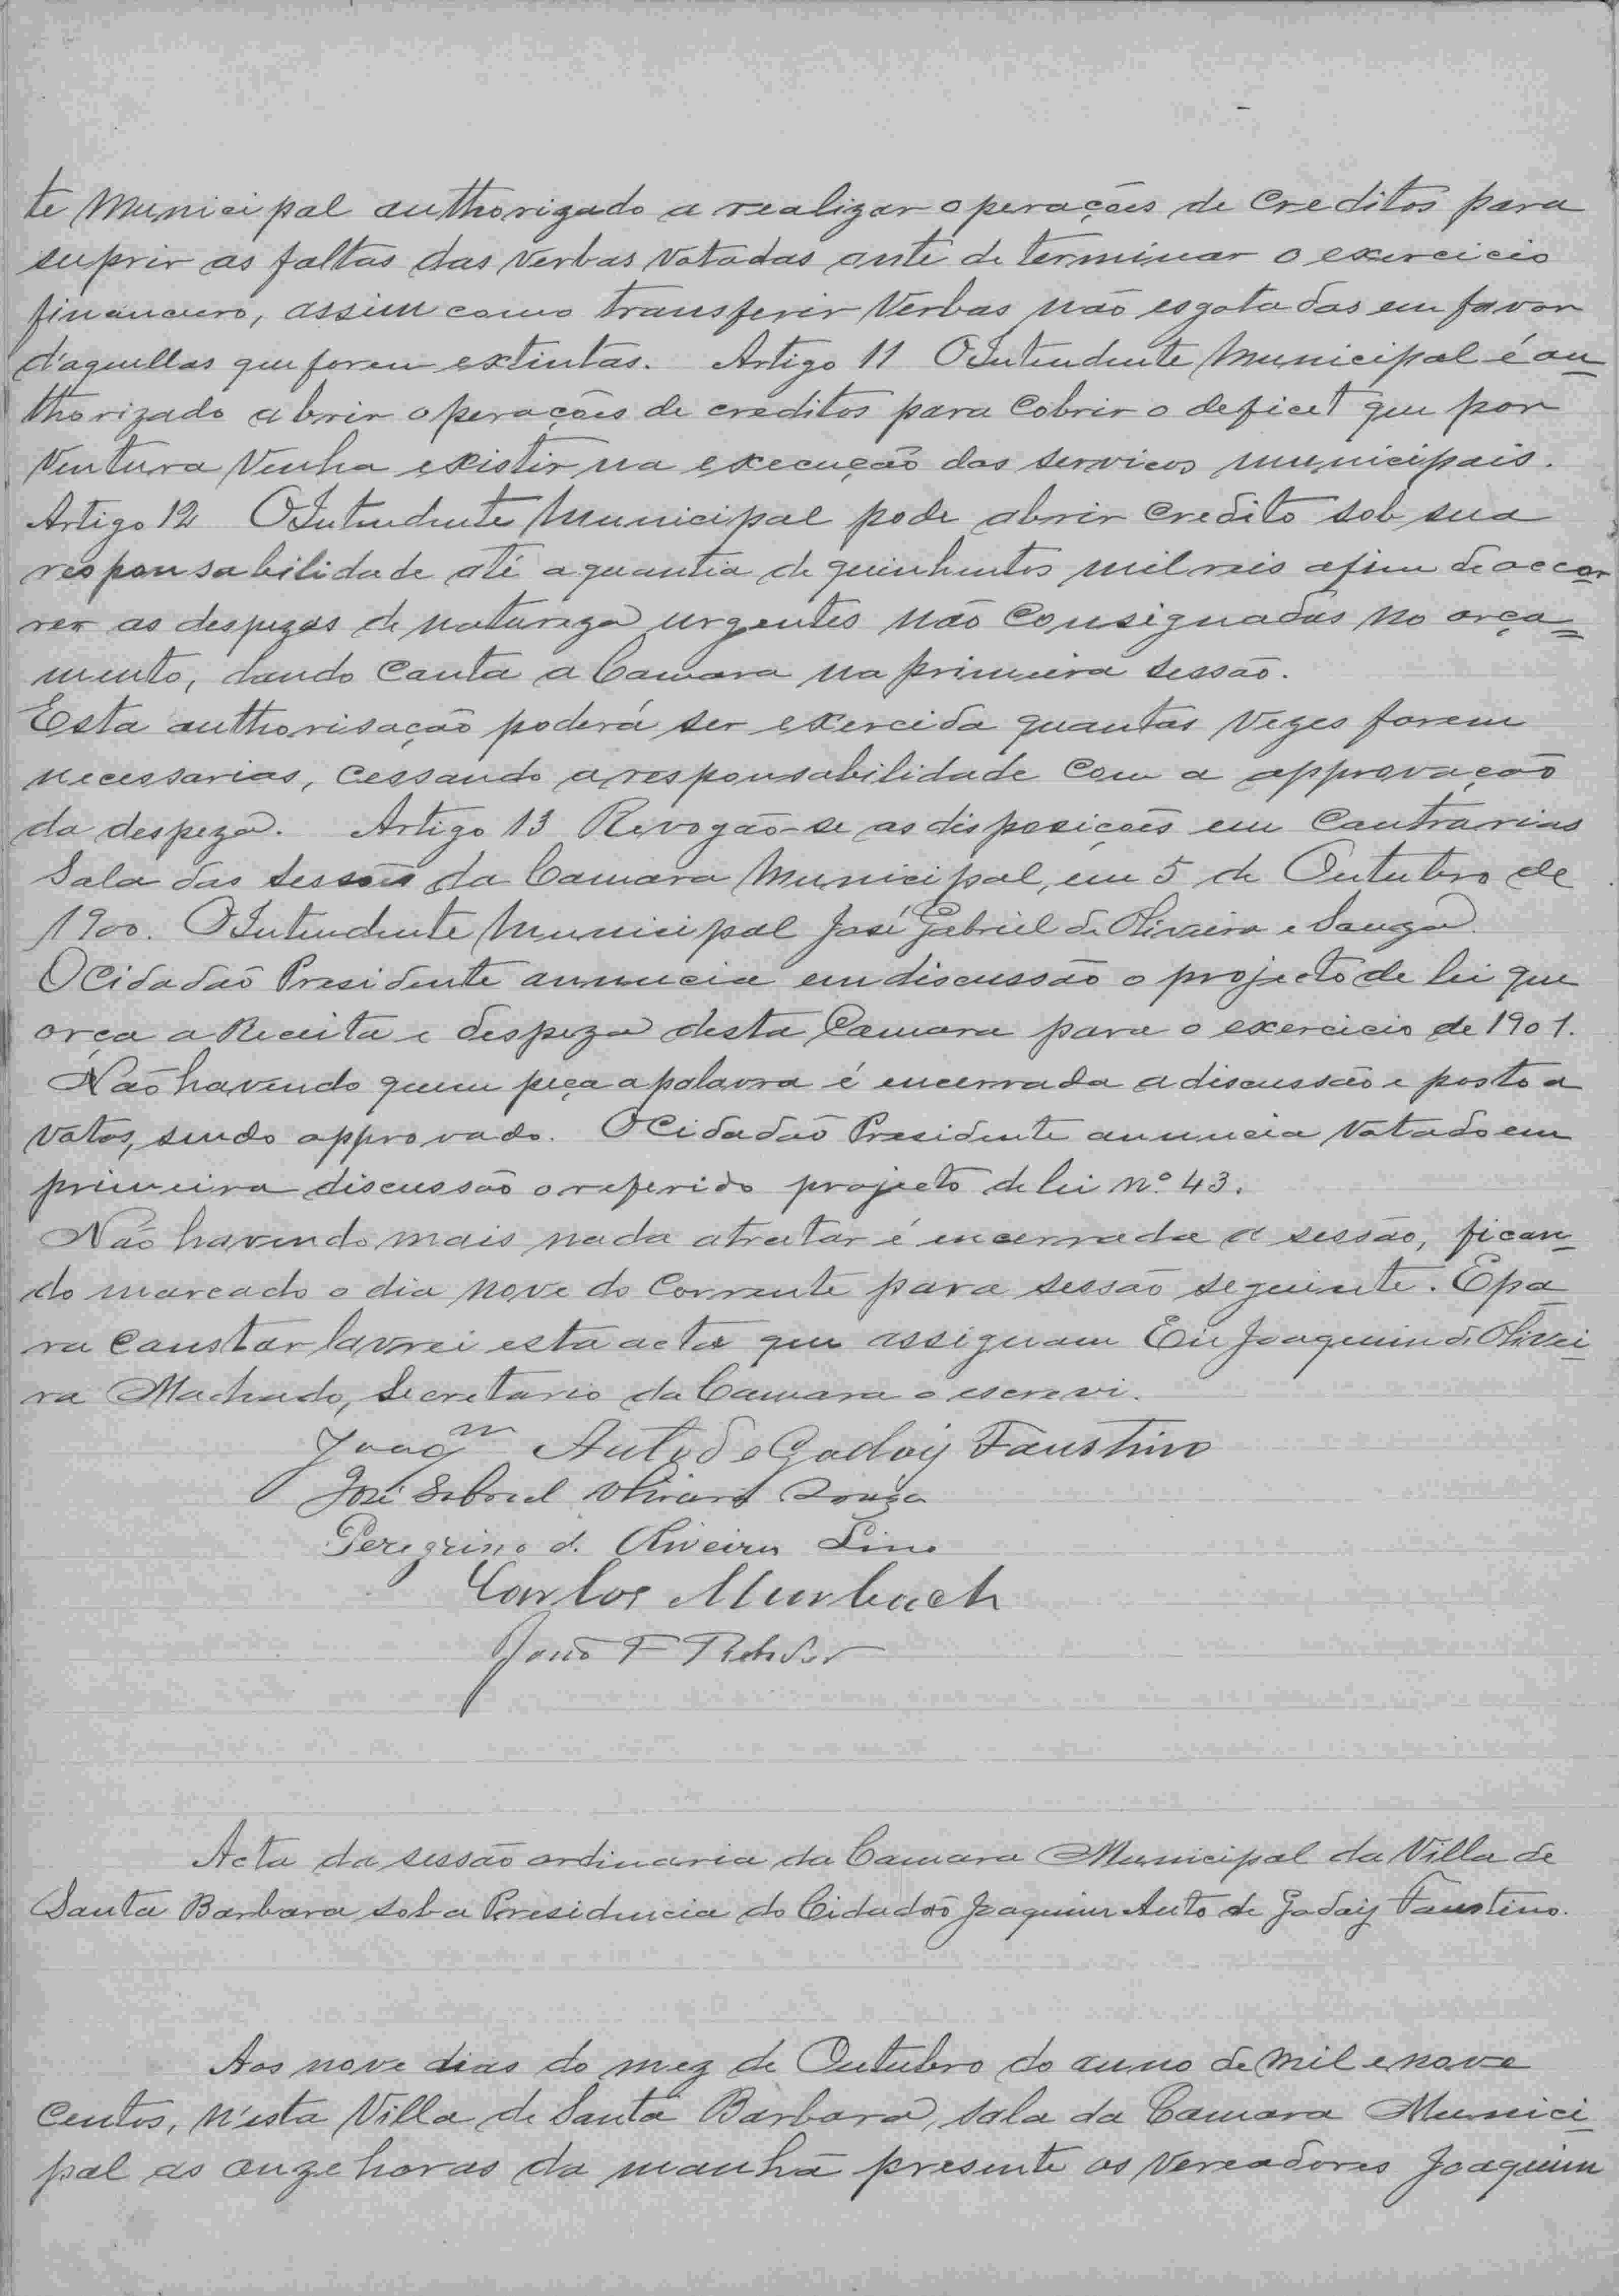 te Municipal authorizado a realizar operações de Creditos para
suprir as faltas das Verbas Votadas ante de terminar o exercicio
financeiro, assim como transferir Verbas não esgotadas em favor
d'aquellas que forem extintas. Artigo 11 O Intendente Municipal é au
thorizado abrir operações de creditos para Cobrir o deficet que por
Ventura Venha existir na execução dos servicos municipais.
Artigo 12 O Intendente Municipal pode abrir Credito sob sua
responsabilidade até a quantia de quinhentos mil reis afim de accor
rer as despezas de natureza urgentes não Consignadas no orça=
mento, dando Conta a Camara na primeira sessão.
Esta authorisação poderá ser exercida quantas Vezes forem
necessarias, Cessando a responsabilidade Com a approvação
da despeza. Artigo 13 Revogão-se as disposições em Contrarias
Sala das sessões da Camara Municipal, em 5 de Outubro de
1900. O Intendente Municipal José Gabriel de Oliveira e Souza.
O Cidadão Presidente annuncia em discussão o projecto de lei que
orça a Receita e despeza desta Camara para o exercicio de 1901.
Não havendo quem peça a palavra é encerrada a discussão e posto a
Votos, sendo approvado. O Cidadão Presidente annuncia Votado em
primeira discussão o referido projecto de lei nº 43.
Não havendo mais nada a tratar é encerrada a sessão, fican-
do marcado o dia nove do Corrente para sessão seguinte. E pa
ra Constar lavrei esta acta que assignam Eu Joaquim de Olivei
ra Machado, Secretario da Camara o escrevi.
Joaqm Auto de Godoy Faustino
José Gabriel Oliveira Souza
Peregrino d. Oliveira Lino
Carlos Murbach
João F Rehder
Acta da sessão ordinaria da Camara Municipal da Villa de
Santa Barbara sob a Presidencia do Cidadão Joaquim Auto de Godoy Faustino.
Aos nove dias do mez de Outubro do anno de mil e nove
Centos, n'esta Villa de Santa Barbara, sala da Camara Munici
pal as onze horas da manhã presente os Vereadores Joaquim